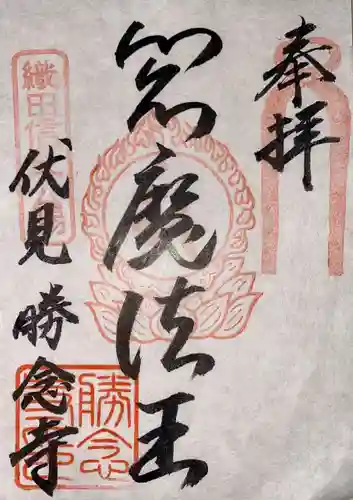 奉拝
閻魔法王
織田信
伏見 勝念寺
勝念